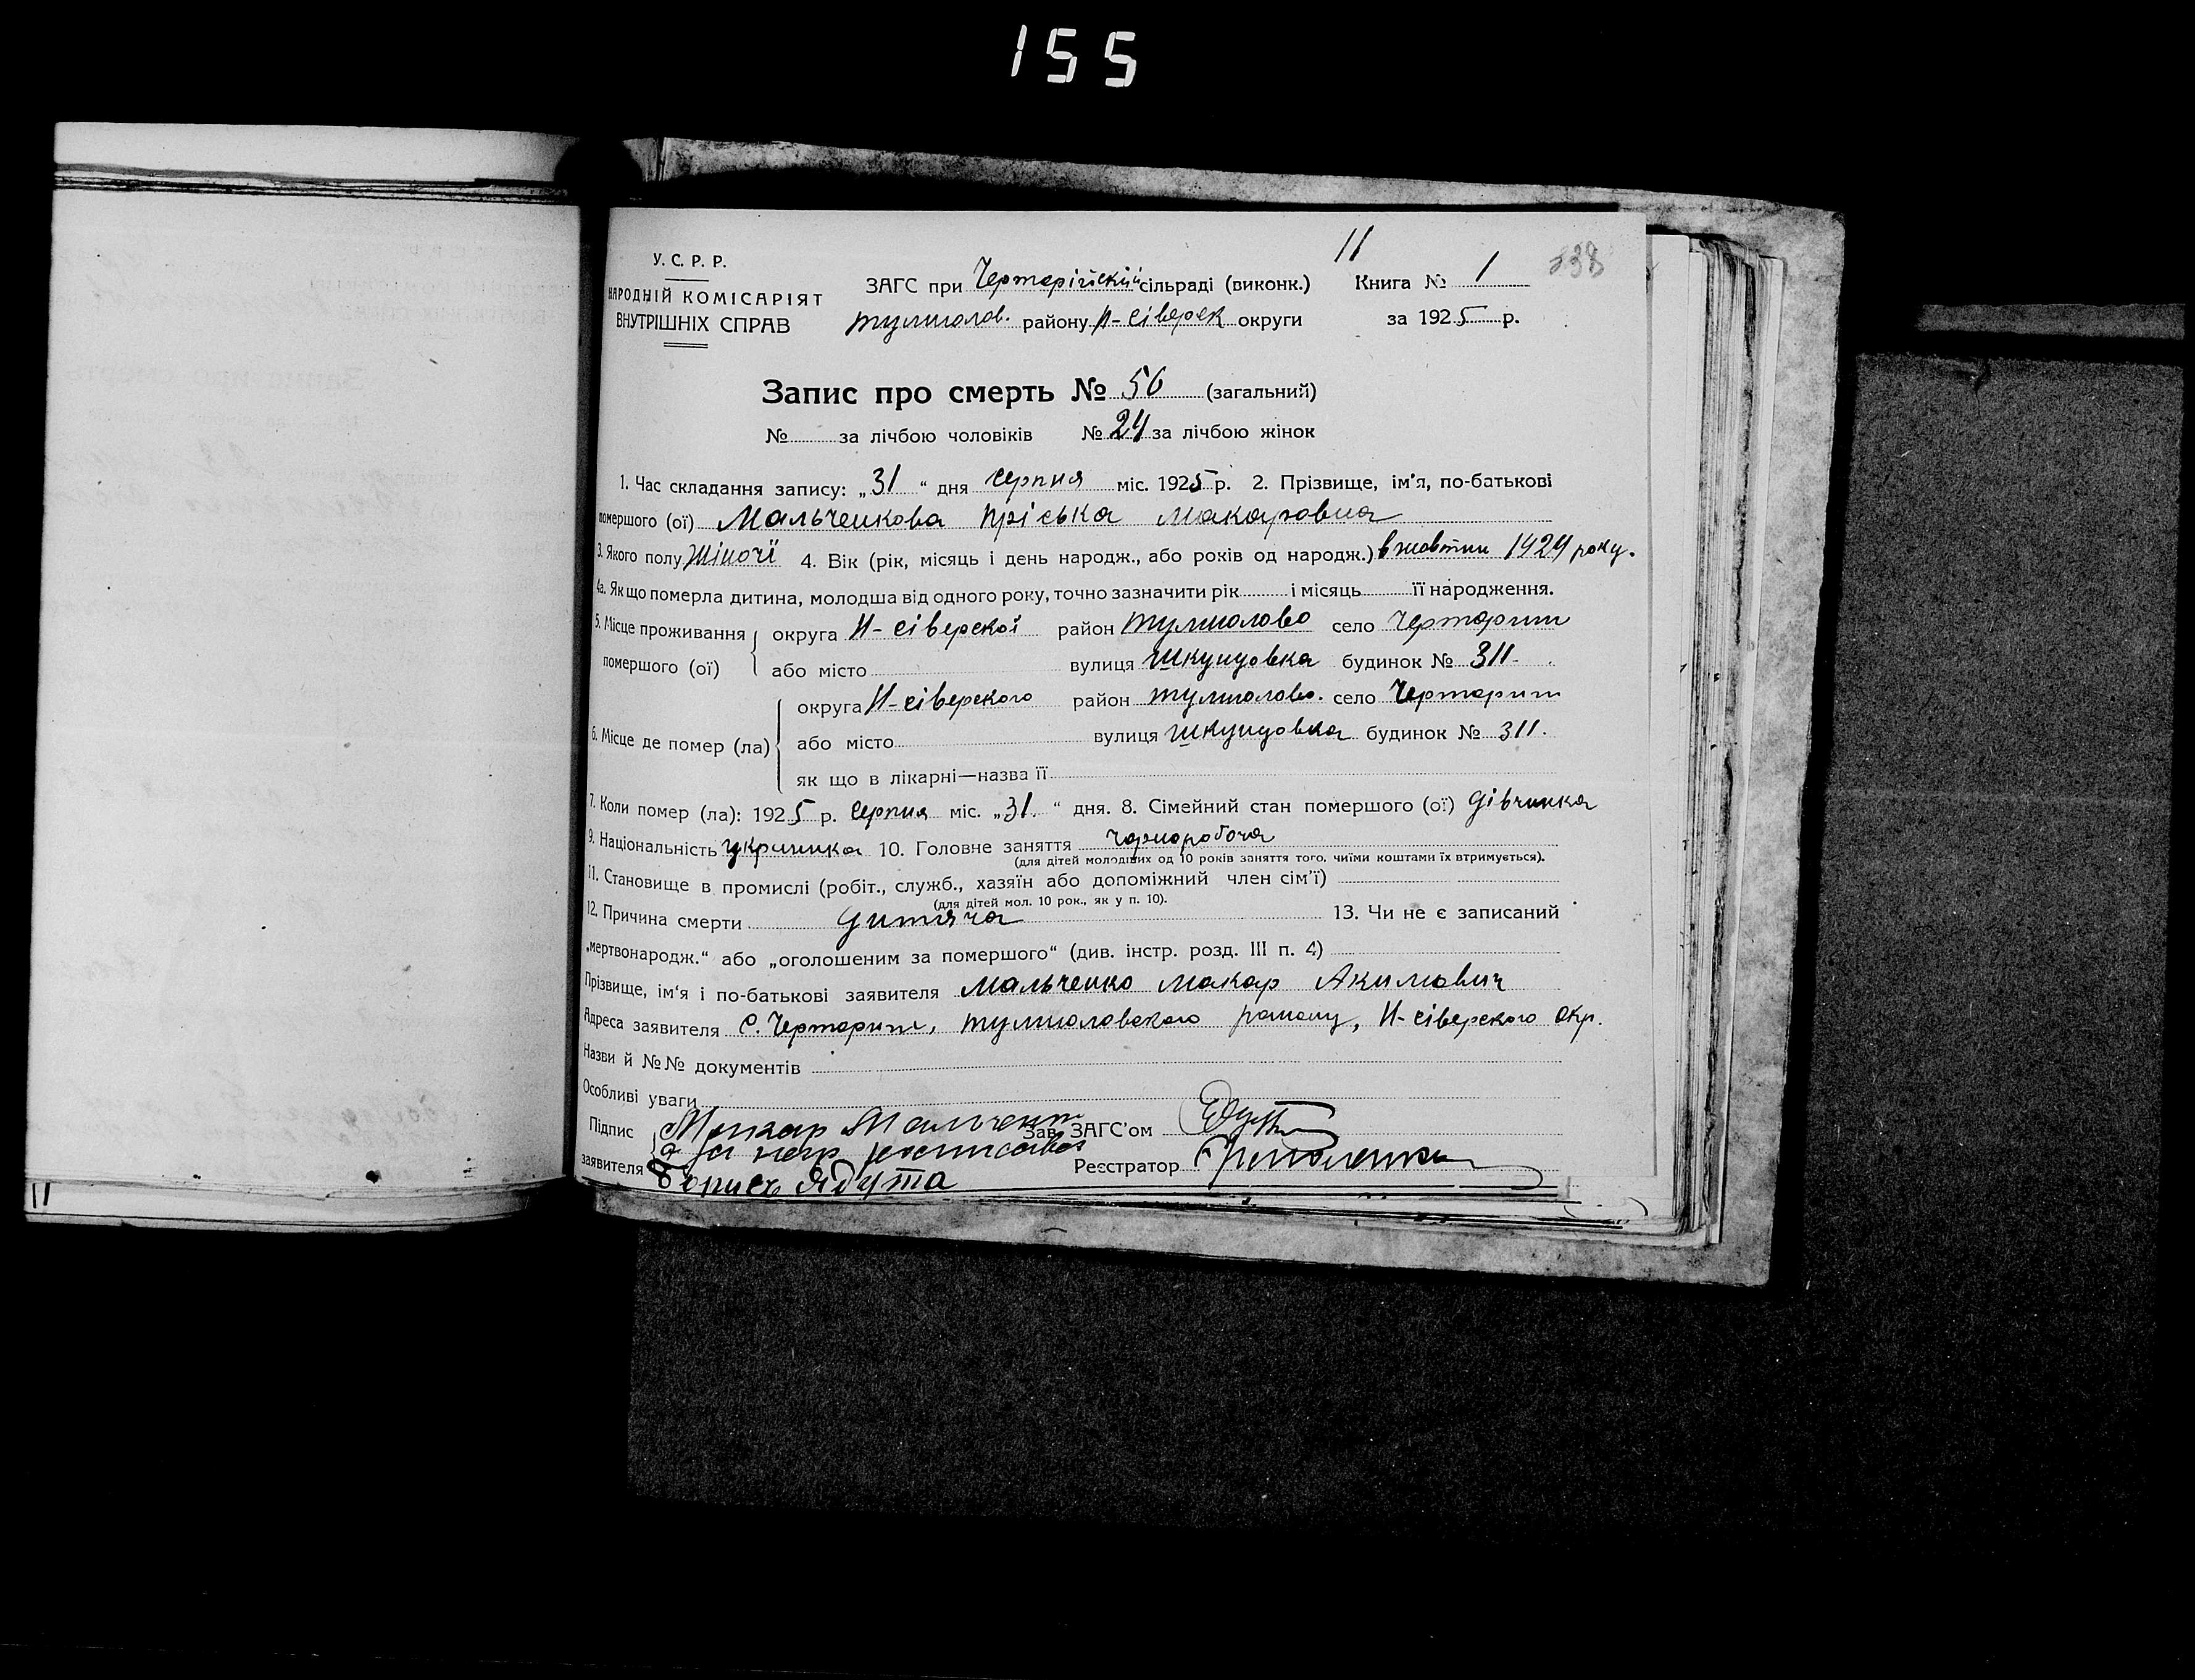 155
11
338
У. С. Р. Р.
НАРОДНІЙ КОМІСАРІЯТ
ВНУТРІШНІХ СПРАВ
ЗАГС при Чертарігіскій сільраді (виконк.) Книга № 1
тулиголов. району Н-сіверск округи за 1925 р.
Запис про смерть № 56 (загальний)
№ за лічбою чоловіків № 24 за лічбою жінок
1. Час складання запису: „31“ дня серпня міс. 1925 р. 2. Прізвище, ім'я, по-батькові
помершого (ої) Мальченкова Пріська Макаровна
3. Якого полу Жіночі 4. Вік (рік, місяць і день народж., або років од народж.) в жовтни 1924 року.
4а. Як що померла дитина, молодша від одного року, точно зазначити рік і місяць її народження.
5. Місце проживання округа Н-сіверскоі район тулиголово село Черториги
помершого (ої) або місто вулиця будинок № 311.
округа Н-сіверского район тулиголово. село Черториги
6. Місце де помер (ла) або місто вулиця будинок № 311.
як що в лікарні—назва її
7. Коли помер (ла): 1925 р. серпня міс. „31.“ дня. 8. Сімейний стан помершого (ої) дівчинка
9. Національність украинка 10. Головне заняття чорноробоча
(для дітей молодших од 10 років заняття того, чиїми коштами їх втримується).
11. Становище в промислі (робіт., служб., хазяїн або допоміжний член сім'ї)
(для дітей мол. 10 рок., як у п. 10).
12. Причина смерти дитяча 13. Чи не є записаний
„мертвонародж.“ або „оголошеним за помершого“ (див. інстр. розд. III п. 4)
Прізвище, ім'я і по-батькові заявителя Мальченко Макар Акимович
Адреса заявителя с. Черториги, тулиголовского району, Н-сіверского окр.
Назви й №№ документів
Особливі уваги
Підпис Макар Мальченко Зав. ЗАГС'ом
а за негр росписався
заявителя Борись Ядута Реєстратор
11